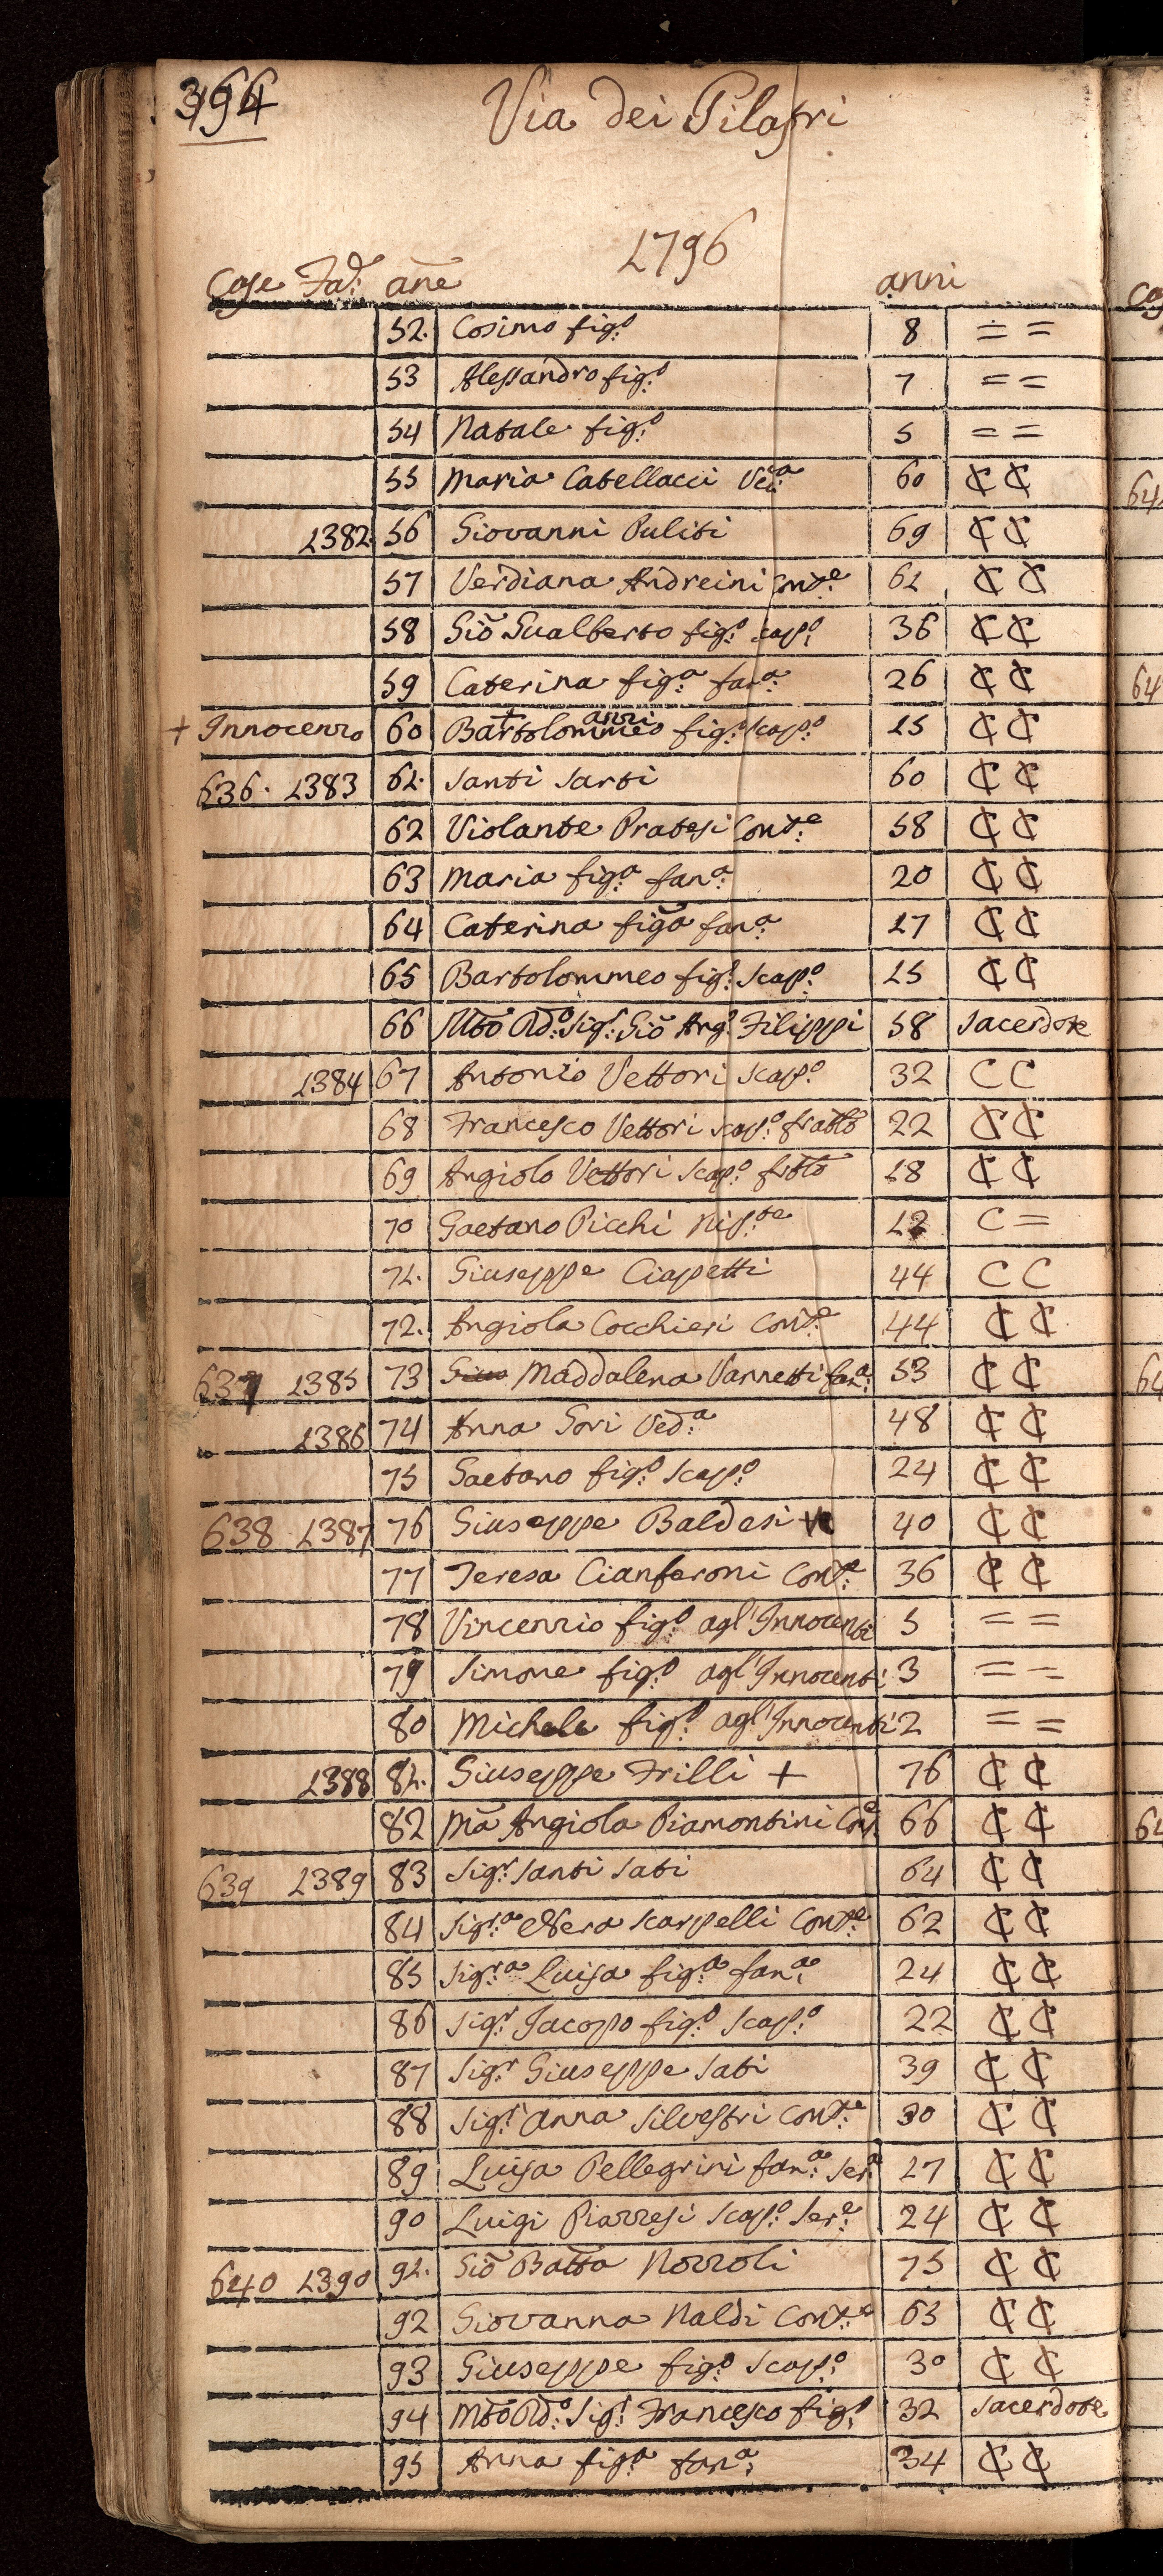 Via dei Pilastri
1796
Case Fad: ane anni
52. Cosimo fig:o 8 = =
53 Alessandro fig:o 7 = =
54 Natale fig:o 5 = =
55 Maria Catellacci Ved:a 60 C C
1382. 56 Giovanni Puliti 69 C C
57 Verdiana Andreini Cont:e 61 C C
58 Gio Gualberto fig:o scap:o 36 C C
59 Caterina fig:a fan:a 26 C C
+ Innocenzo 60 Bartolommeo fig:o scap:o 15 C C
636. 1383 61. Santi Sarti 60 C C
62 Violante Pratesi Cont:e 58 C C
63 Maria fig:a fan:a 20 C C
64 Caterina figa fan:a 17 C C
65 Bartolommeo fig:o scap:o 15 C C
66 Mto Rd:o Sig:r Gio Ang:o Filippi 58 Sacerdote
1384 67 Antonio Vettori scap:o 32 C C
68 Francesco Vettori scap:o fratto 22 C C
69 Angiolo Vettori scap:o frtto 18 C C
70 Gaetano Picchi Nip:te 12 C =
71. Giuseppe Ciapetti 44 C C
72. Angiola Cocchieri Cont:e 44 C C
637 1385 73 Maddalena Vannetti fan:a 53 C C
1386 74 Anna Gori Ved:a 48 C C
75 Gaetano fig:o scap:o 24 C C
638 1387 76 Giuseppe Baldesi 40 C C
77 Teresa Cianferoni Cont:e 36 C C
78 Vincenzio fig:o agl'Innocenti 5 = =
79 Simone fig:o agl'Innocenti 3 = =
80 Michele fig:o agl'Innocenti 2 = =
1388 81. Giuseppe Frilli + 76 C C
82 Ma Angiola Piamontini Con:e 66 C C
639 1389 83 Sig:r Santi Sati 64 C C
84 Sig:ra Scarpelli Cont:e 62 C C
85 Sig:ra Luisa fig:a fan:a 24 C C
86 Sig:r Jacopo fig:o scap:o 22 C C
87 Sig:r Giuseppe Sati 39 C C
88 Sig:r Anna Silvestri Cont:e 30 C C
89 Luisa Pellegrini fan:a Ser:a 27 C C
90 Luigi Piazzesi scap:o Ser:e 24 C C
640 1390 91. Gio Batta Nozzoli 75 C C
92 Giovanna Naldi Cont:e 63 C C
93 Giuseppe fig:o scap:o 30 C C
94 Mto Rd:o Sig:r Francesco fig:o 32 Sacerdote
95 Anna fig:a fan:a 34 C C